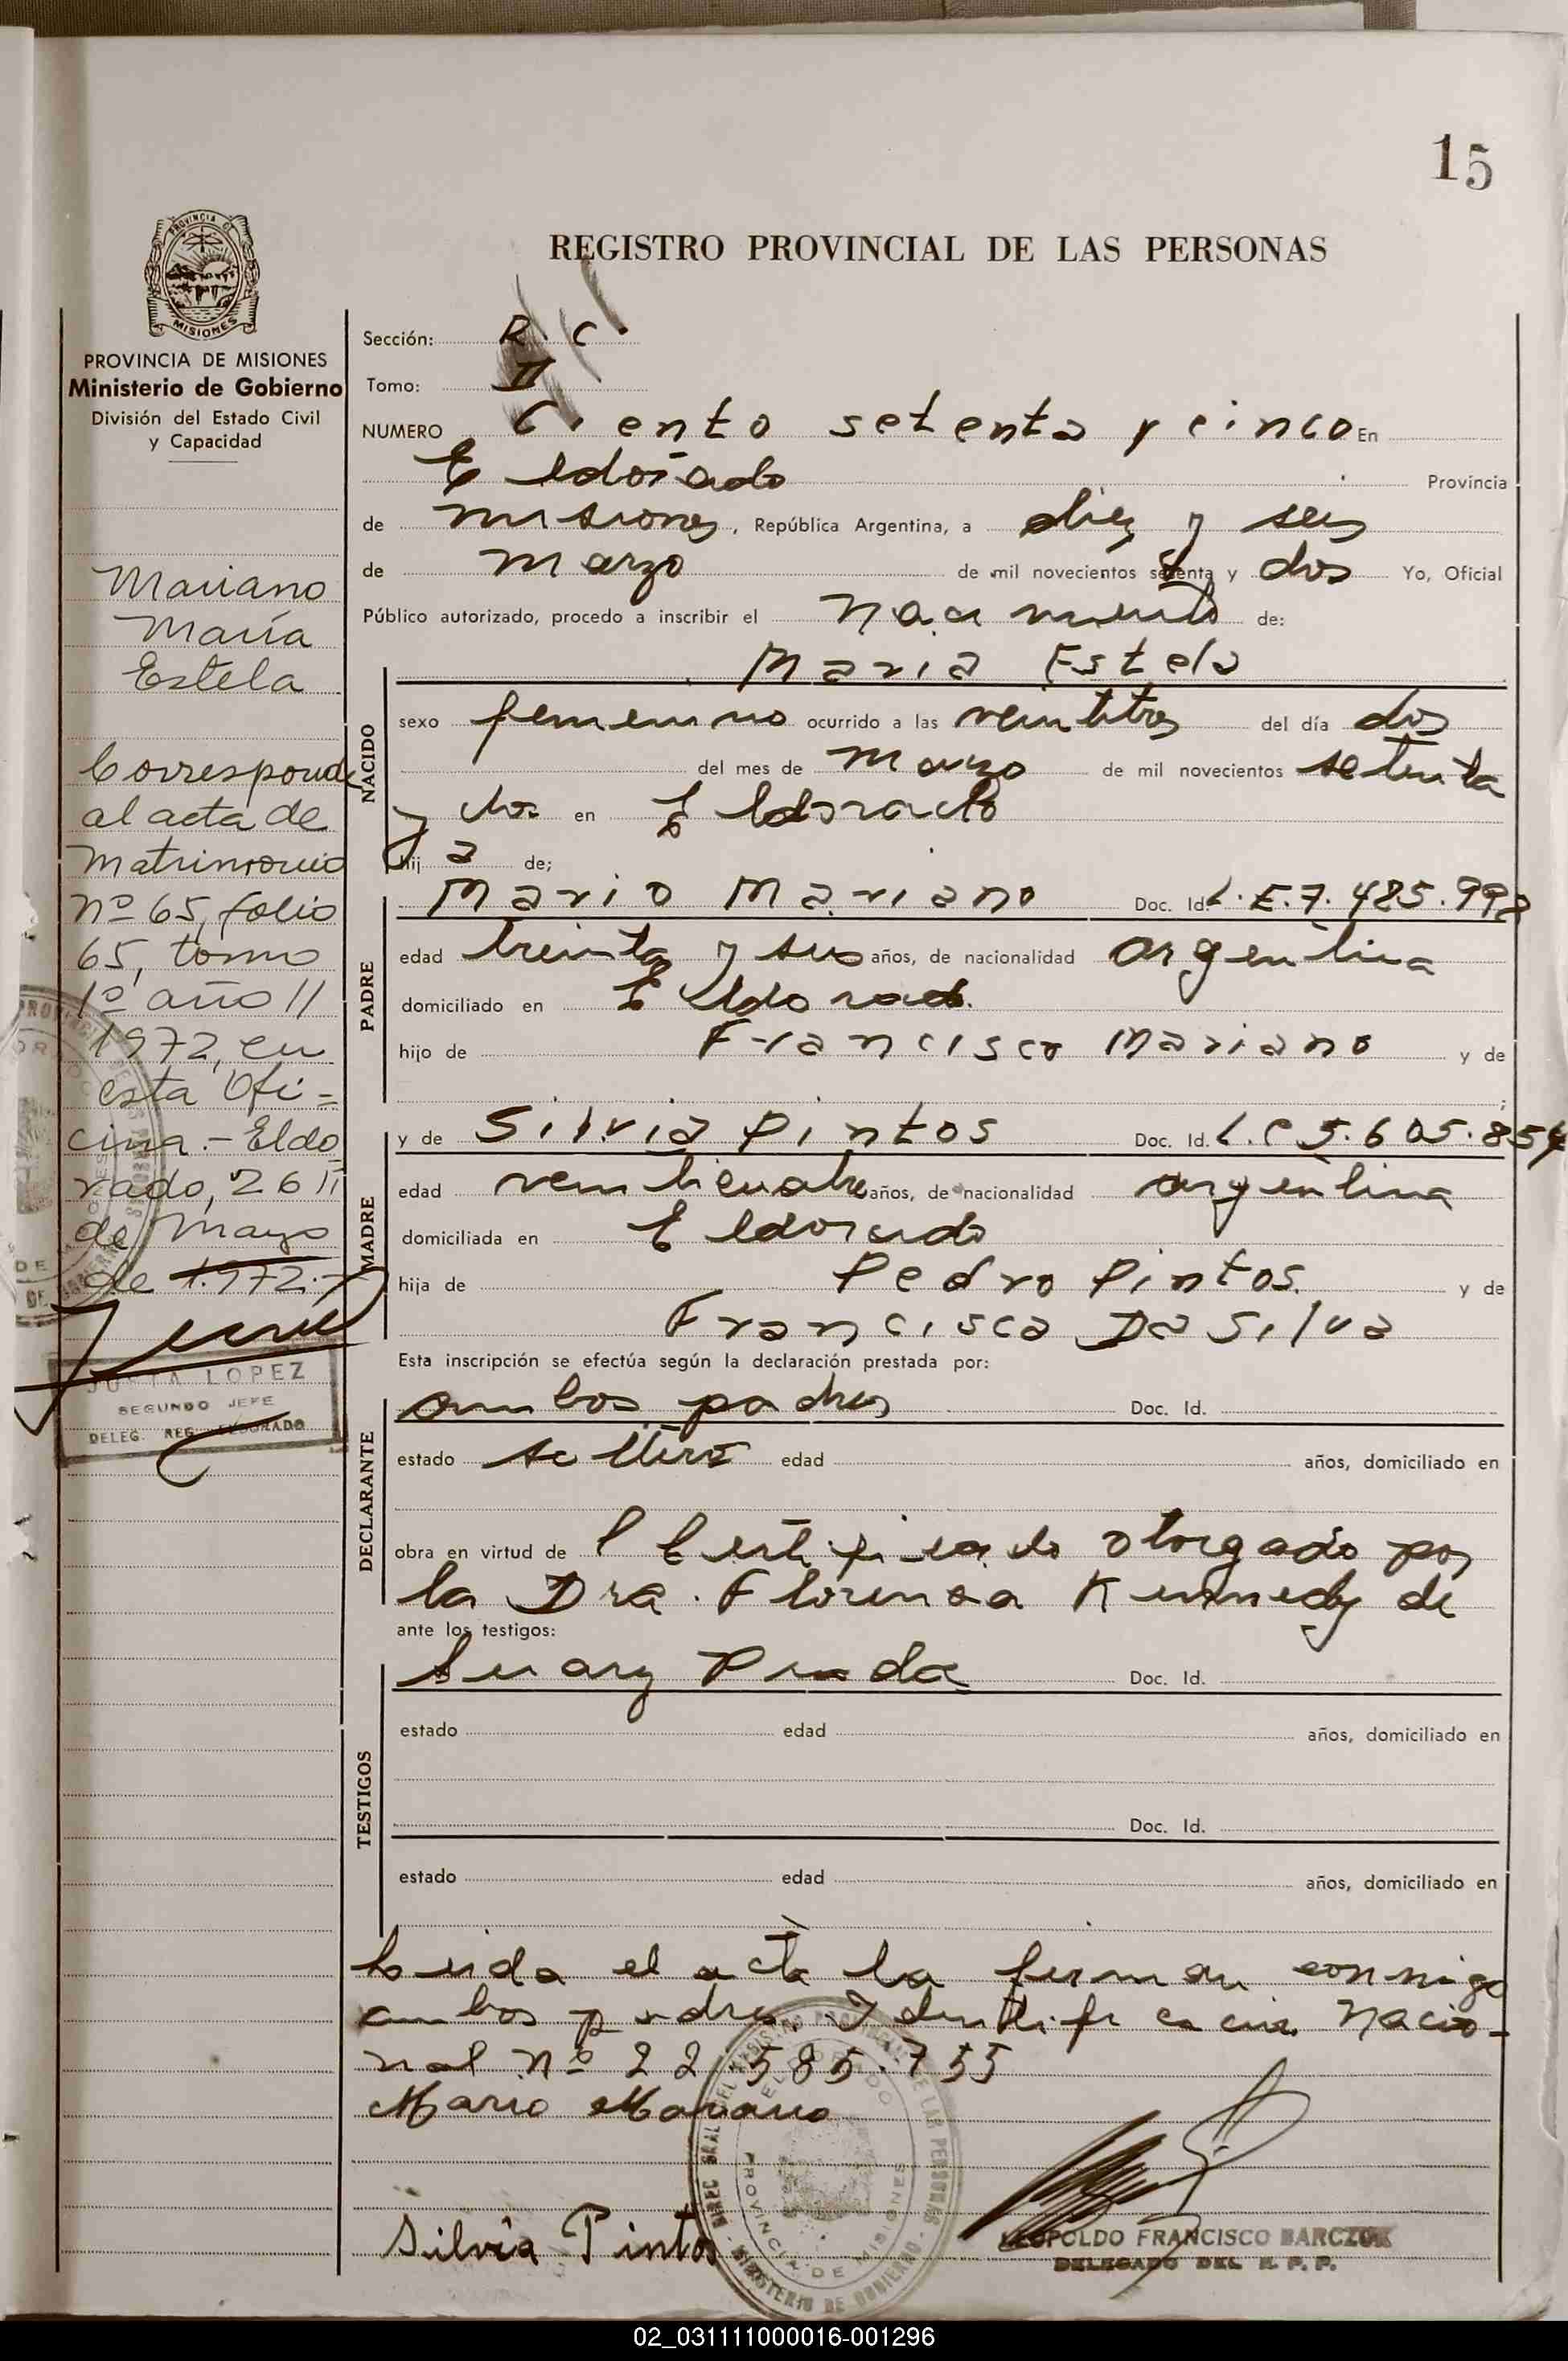 15
REGISTRO PROVINCIAL DE LAS PERSONAS
PROVINCIA DE MISIONES
Ministerio de Gobierno
División del Estado Civil
y Capacidad
Mariano
María
Estela
Corresponde
al acta de
matrimonio
nº 65, folio
65, tomo
1º año //
1972, en
esta Ofi=
cina.- Eldo
rado, 26 //
de Mayo
de 1.972.-
JUSTA LOPEZ
SEGUNDO JEFE
DELEG. REG. ELDORADO
Sección: R. C.
Tomo: II
NUMERO Ciento setenta y cinco En
Eldorado Provincia
de misiones, República Argentina, a diez y seis
de marzo de mil novecientos setenta y dos Yo, Oficial
Público autorizado, procedo a inscribir el nacimiento de:
Maria Estela
NACIDO
sexo femenino ocurrido a las veintitres del día dos
del mes de marzo de mil novecientos setenta
y dos en Eldorado
hija de;
PADRE
Mario Mariano Doc. Id. L.E.7.485.998
edad treinta y seis años, de nacionalidad argentina
domiciliado en Eldorado.
hijo de Francisco Mariano y de
;
MADRE
y de Silvia Pintos Doc. Id. L.C 5.605.854
edad veinticuatro años, de nacionalidad argentina
domiciliada en Eldorado
hija de Pedro Pintos. y de
Francisca Da Silva
Esta inscripción se efectúa según la declaración prestada por:
DECLARANTE
ambos padres Doc. Id.
estado soltero edad años, domiciliado en
obra en virtud de l Certificado otorgado por
la Dra. Florencia Kennedy de
ante los testigos:
TESTIGOS
Prada Doc. Id.
estado edad años, domiciliado en
Doc. Id.
estado edad años, domiciliado en
Leida el acta la firman conmigo
ambos padres. Identificacion Nacio-
nal nº 22.585.755
Mario Mariano
Silvia Pintos
PROVINCIA DE MISIONES
LEOPOLDO FRANCISCO BARCZUK
DELEGADO DEL R. P. P.
02_031111000016-001296